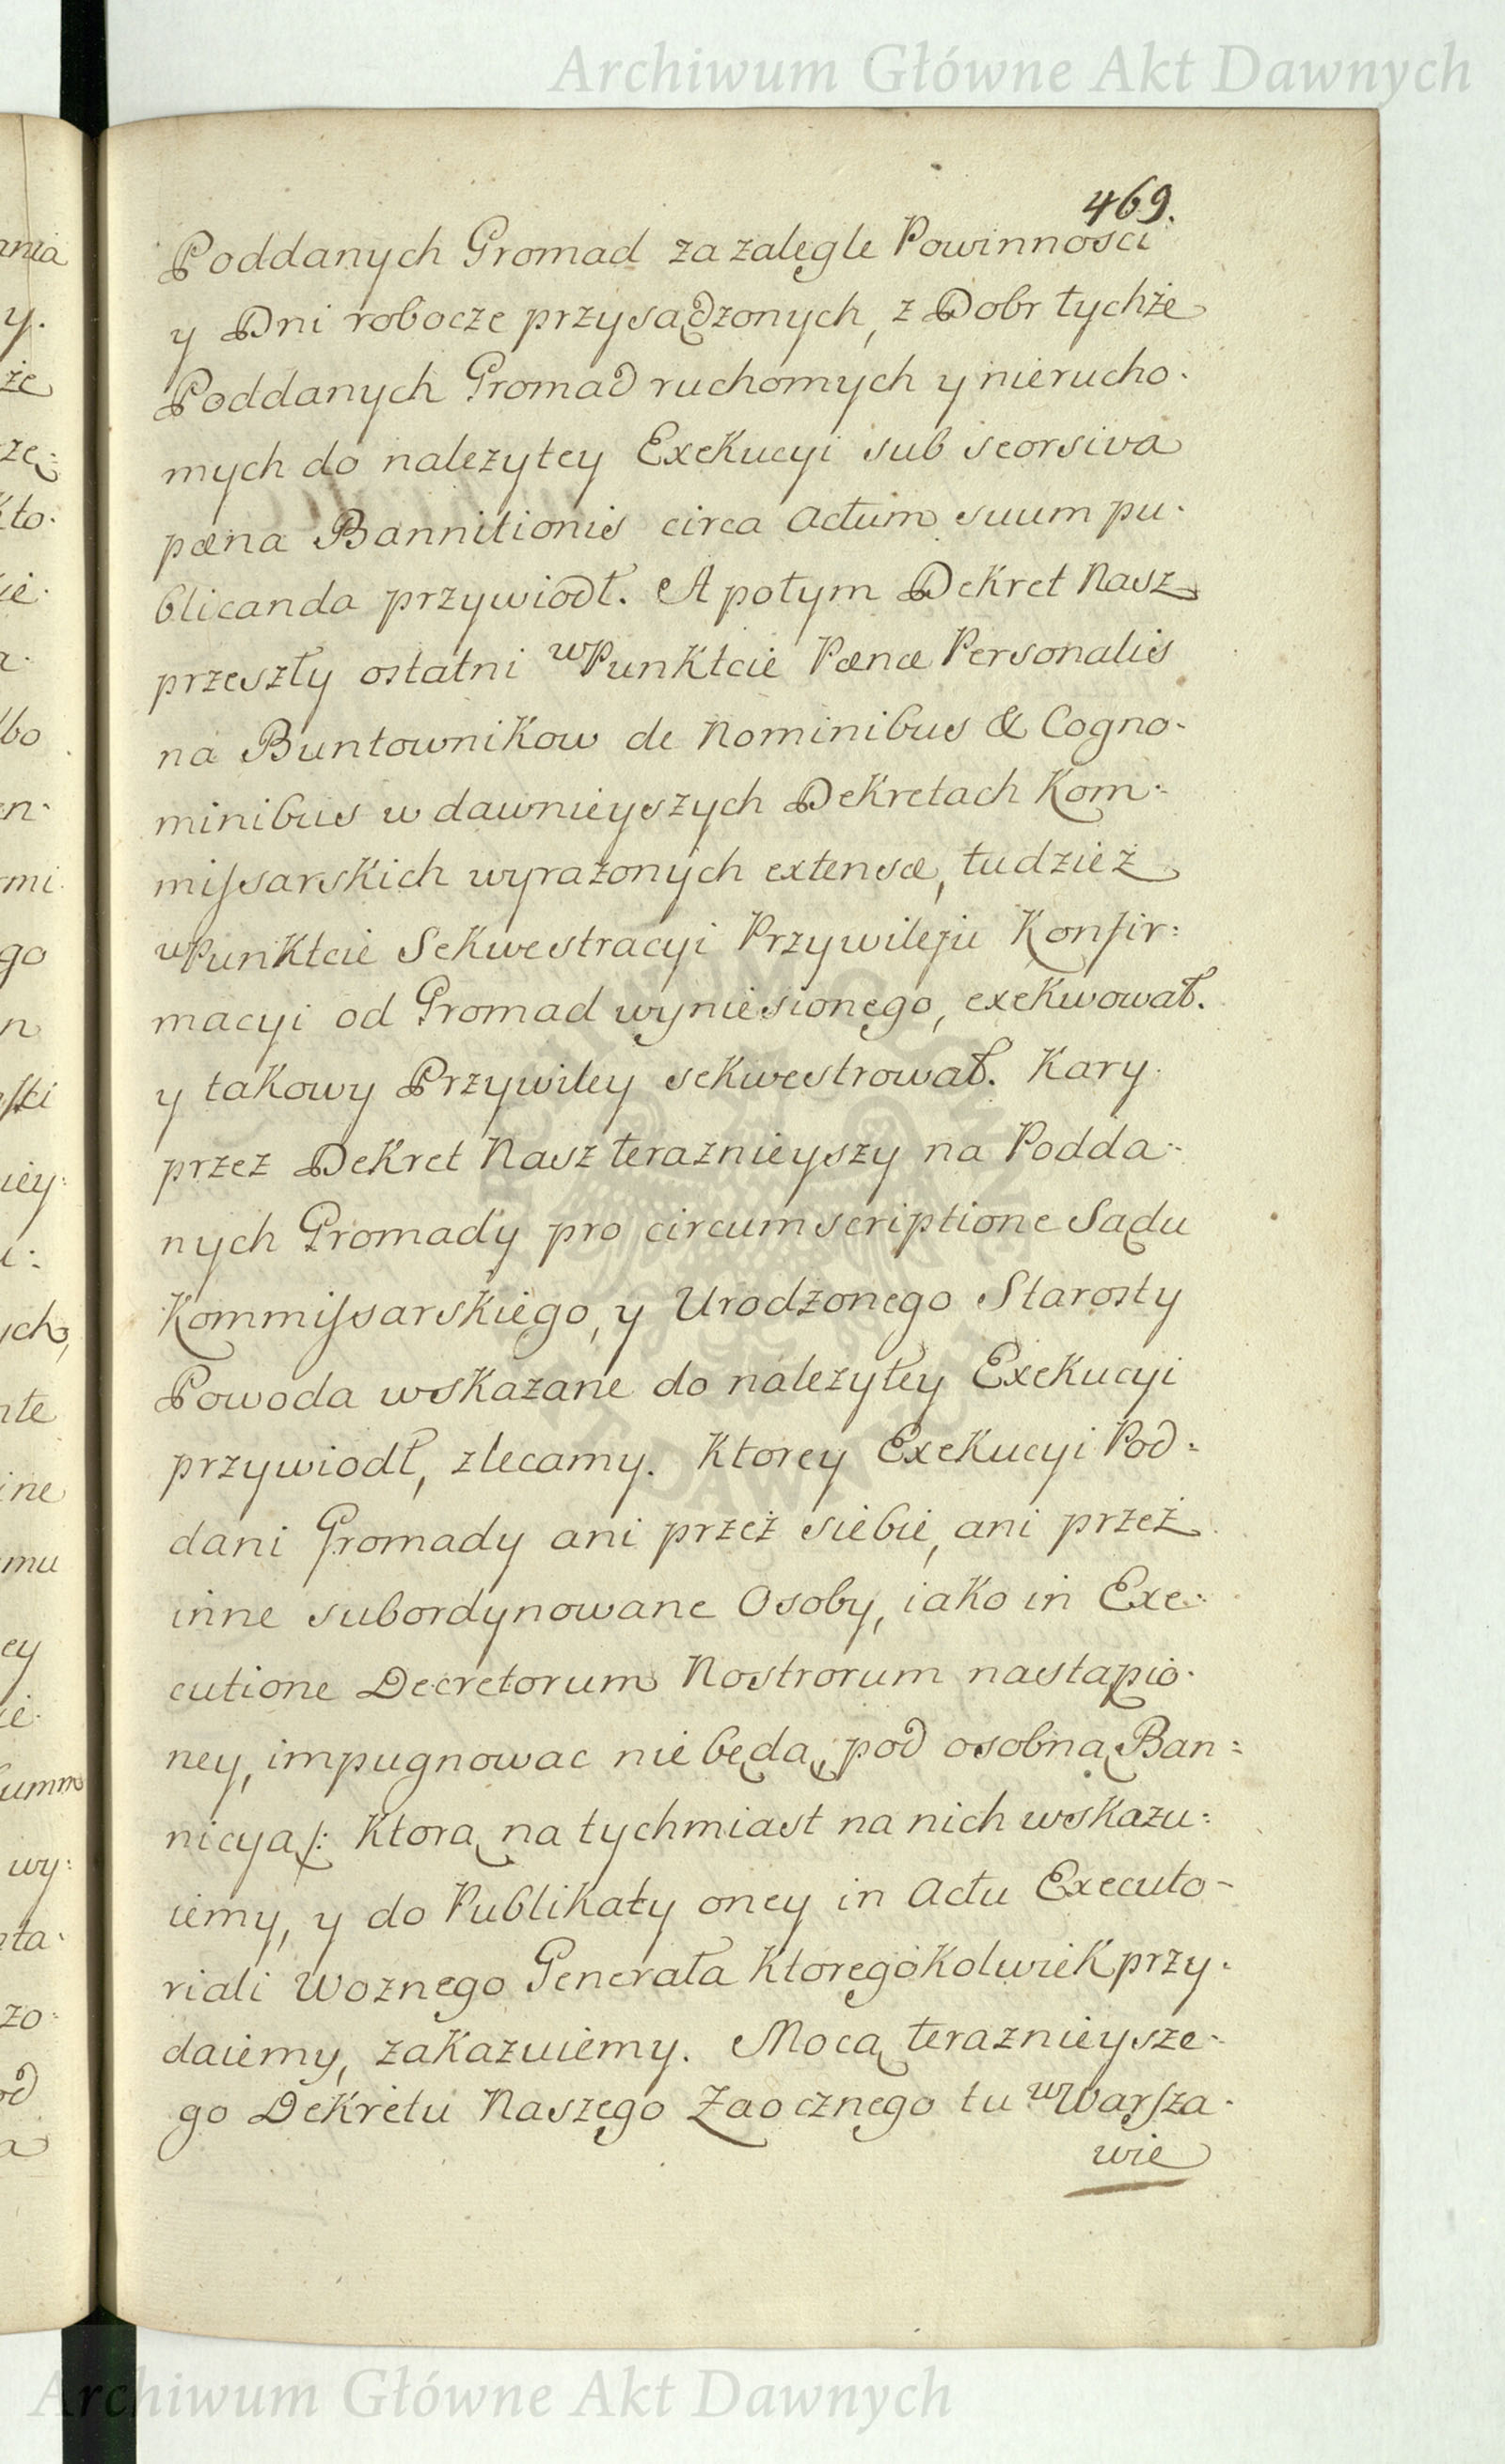 Archiwum Główne Akt Dawnych
469.
Poddanych Gromad za zalegle Powinnosci
y Dni robocze przysądzonych, z Dobr tychże
Poddanych Gromad ruchomych y nierucho-
mych do nalezytey Exekucyi sub seorsiva
pæna Bannitionis circa Actum suum pu-
blicanda przywiodł. A potym Dekret Nasz
przeszły ostatni w Punktcie Pænæ Personalis
na Buntownikow de Nominibus & Cogno-
minibus w dawnieyszych Dekretach Kom-
missarskich wyrażonych extensæ, tudzież
w Punktcie Sekwestracyi Przywileju Konfir-
macyi od Gromad wyniesionego, exekwował.
y takowy Przywiley sekwestrował. Kary
przez Dekret Nasz teraznieyszy na Podda-
nych Gromady pro circumscriptione Sądu
Kommissarskiego, y Urodzonego Starosty
Powoda wskazane do nalezytey Exekucyi
przywiodł, zlecamy. Ktorey Exekucyi Pod-
dani Gromady ani przeż siebie, ani przeż
inne subordynowane Osoby, iako in Exe-
cutione Decretorum Nostrorum nastąpio-
ney, impugnowac nie będą, pod osobną Ban-
nicyą /: Ktorą natychmiast na nich wskazu-
iemy, y do Publikaty oney in Actu Executo-
riali Woznego Generała Ktoregokolwiek przy-
daiemy, zakazuiemy. Mocą teraznieysze-
go Dekretu Naszego Zaocznego tu w Warsza-
wie
Archiwum Główne Akt Dawnych